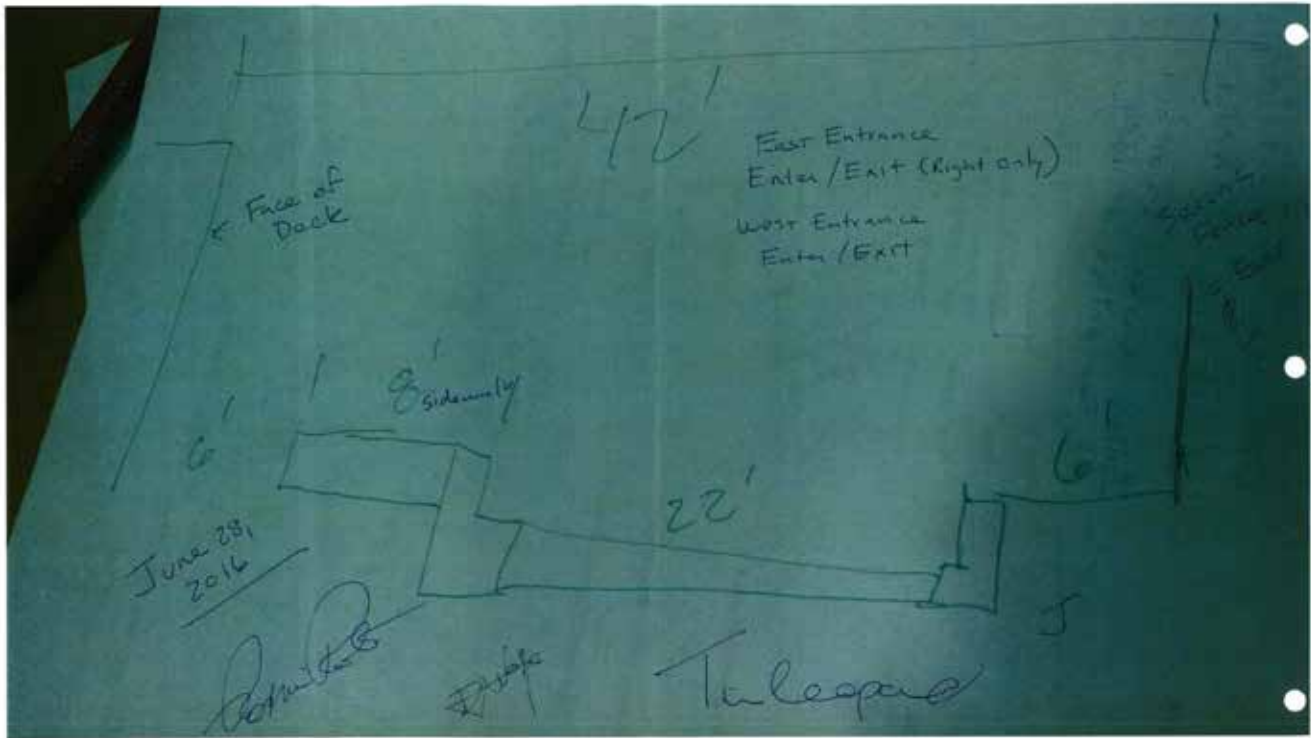 42'
East Entrance
Enter/Exit (Right only)
West Entrance
Enter/Exit
← Face of
Dock
Fence
6'
8'
sidewalk
22'
6'
June 28,
2016
J